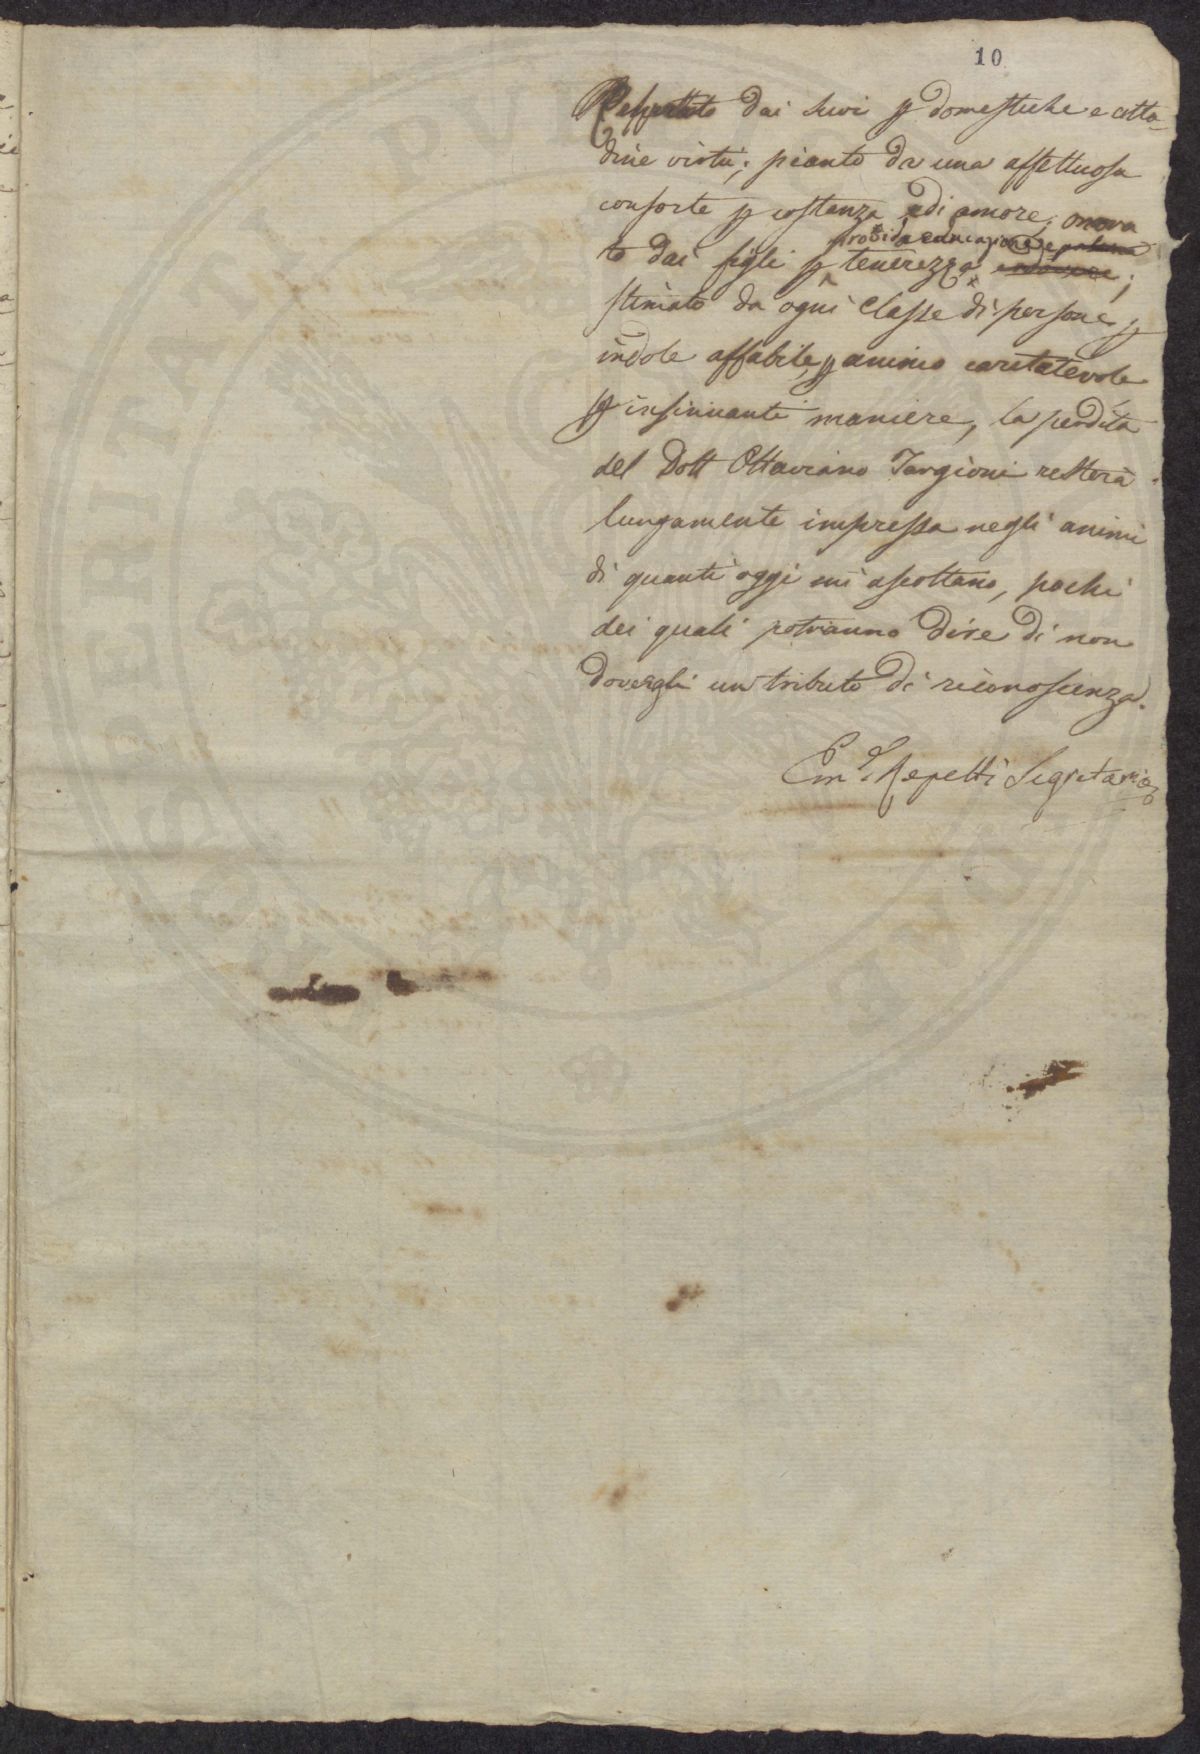 10
Rispettato dai suoi p domestiche e citta-
dine virtù; pianto da una affettuosa
consorte p costanza di amore; onora
to dai figli p tenerezza
probida educazione e paterna
stimato da ogni classe di persone p
indole affabile, p animo caritatevole
p insinuanti maniere, la perdita
del Dott Ottaviano Targioni resterà
lungamente impressa negli animi
di quanti oggi mi ascoltano, pochi
dei quali potranno dire di non
dovergli un tributo di riconoscenza.
Em.l Repetti Segretario